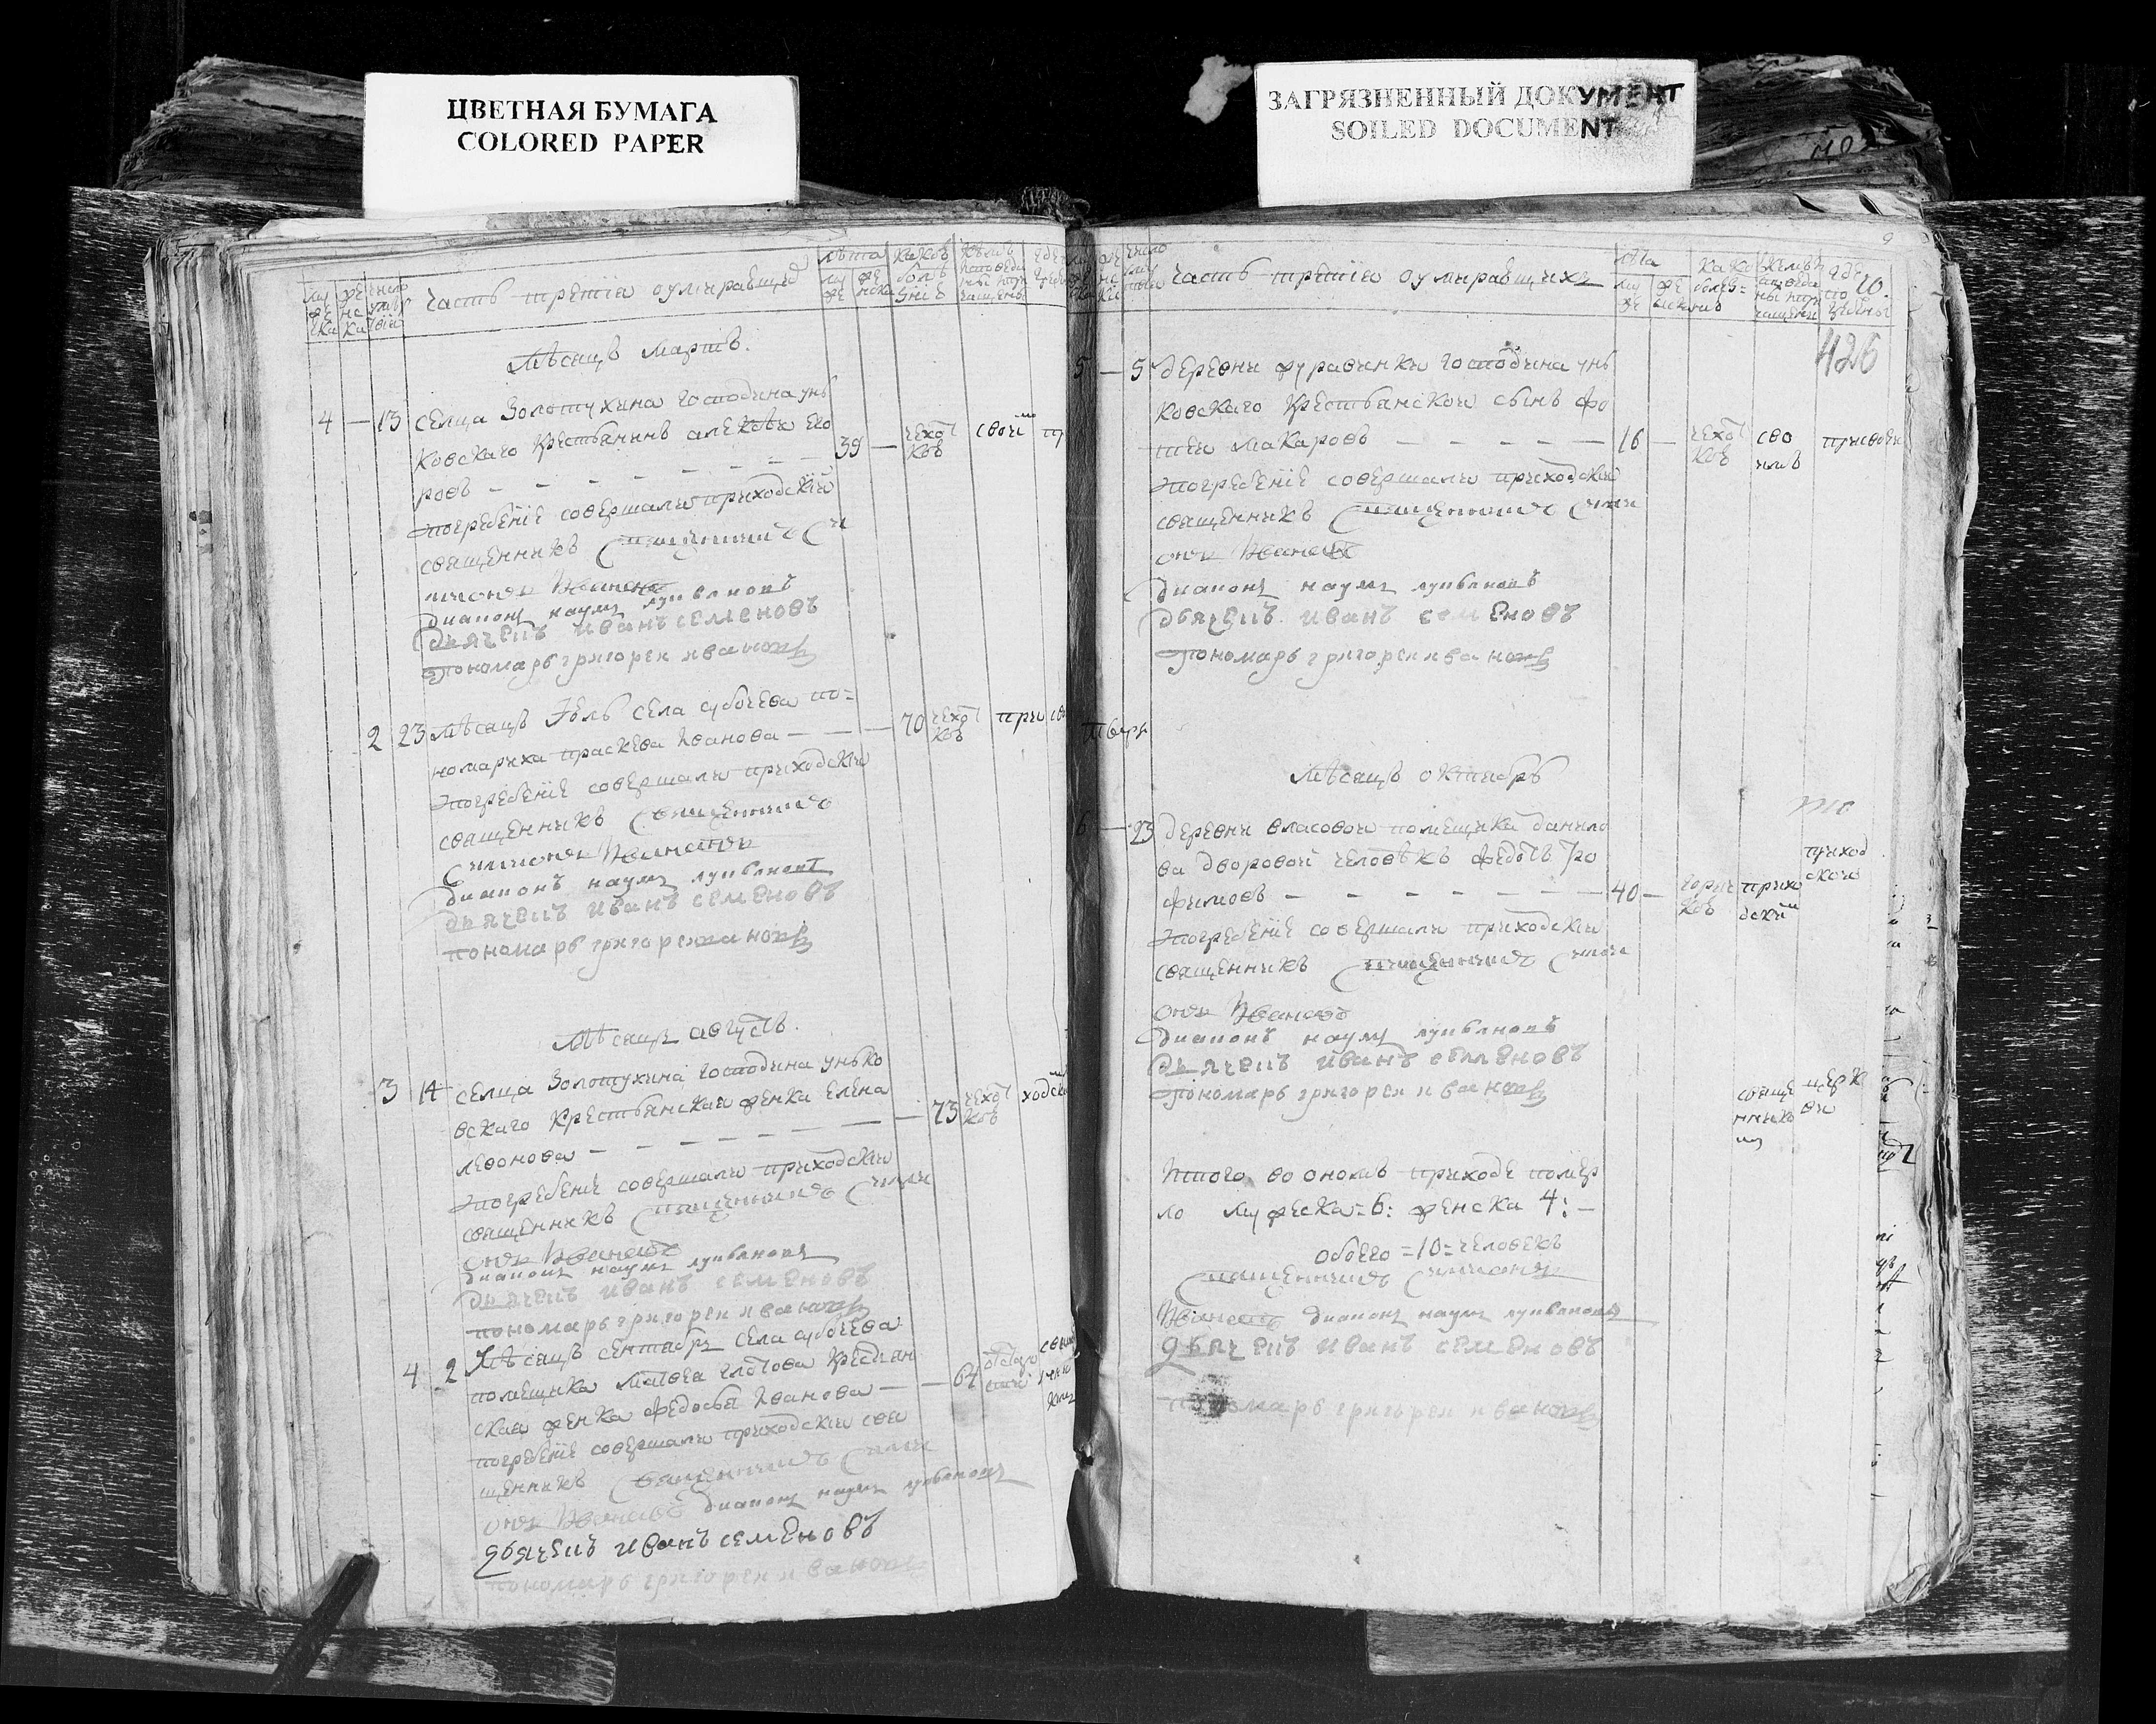 ЦВЕТНАЯ БУМАГА
COLORED PAPER
ЗАГРЯЗНЕННЫЙ ДОКУМЕНТ
SOILED DOCUMENT
часть третiя оумиравшие
Мѣсяцъ мартъ.
4 — 13 селца Золотухина господина унь
ковскаго крестьянинъ алексѣи его
ровъ — — — — — — 39 — чехот
ков свои
погребенiе совершалъ приходскiи
священникъ священникъ Си
мионъ Ивановъ
диаконъ наумъ лукьяновъ
дьячекъ иванъ семеновъ
пономарь григореи ивановъ
2 23 мѣсяцъ Iюль села субочева по=
номариха праскева Iванова — — — 70 чехот
ков
погребенiе совершалъ приходскiи
священникъ священникъ
Симионъ Ивановъ
диаконъ наумъ лукьяновъ
дьячекъ иванъ семеновъ
пономарь григореи ивановъ
Мѣсяцъ августъ.
3 14 селца Золотухина господина унько
вскаго крестьянская женка елена
левонова — — — — — — — 73 чехот
ков
погребенiе совершалъ приходскiи
священникъ священникъ Сими
онъ Ивановъ
диаконъ наумъ лукьяновъ
дьячекъ иванъ семеновъ
пономарь григореи ивановъ
4 2 Мѣсяцъ сентябрь села субочева
помещика Матвея глотова крестьян
ская женка федосья Iванова — — 64
погребенiе совершалъ приходскiи свя
щенникъ священникъ Сими
онъ Ивановъ диаконъ наумъ лукьяновъ
дьячекъ иванъ семеновъ
пономарь григореи ивановъ
часть третiя оумиравшихъ
10.
426
5 — 5 деревни журавинки господина унь
ковскаго крестьянскои сынъ фо
теи макаровъ — — — — — 16 — чехот
ков сво
имъ
погребенiе совершалъ приходскiи
священникъ священникъ Сими
онъ Ивановъ
диаконъ наумъ лукьяновъ
дьячекъ иванъ семеновъ
пономарь григореи ивановъ
мѣсяцъ октябрь
6 — 23 деревни власовои помещика данило
ва дворовои человѣкъ федотъ тро
фимовъ — — — — — — — 40 — горяч
ков прихо
дским
приход
скои
погребенiе совершалъ приходскiи
священникъ священникъ Сими
онъ Ивановъ
диаконъ наумъ лукьяновъ
дьячекъ иванъ семеновъ
пономарь григореи ивановъ
свяще
ннико
мъ
церк
ви
Iтого во ономъ приходе помер
ло мужеска=6: женска 4: —
обоего =10= человекъ
священникъ Симионъ
Ивановъ диаконъ наумъ лукьяновъ
дьячекъ иванъ семеновъ
пономарь григореи ивановъ